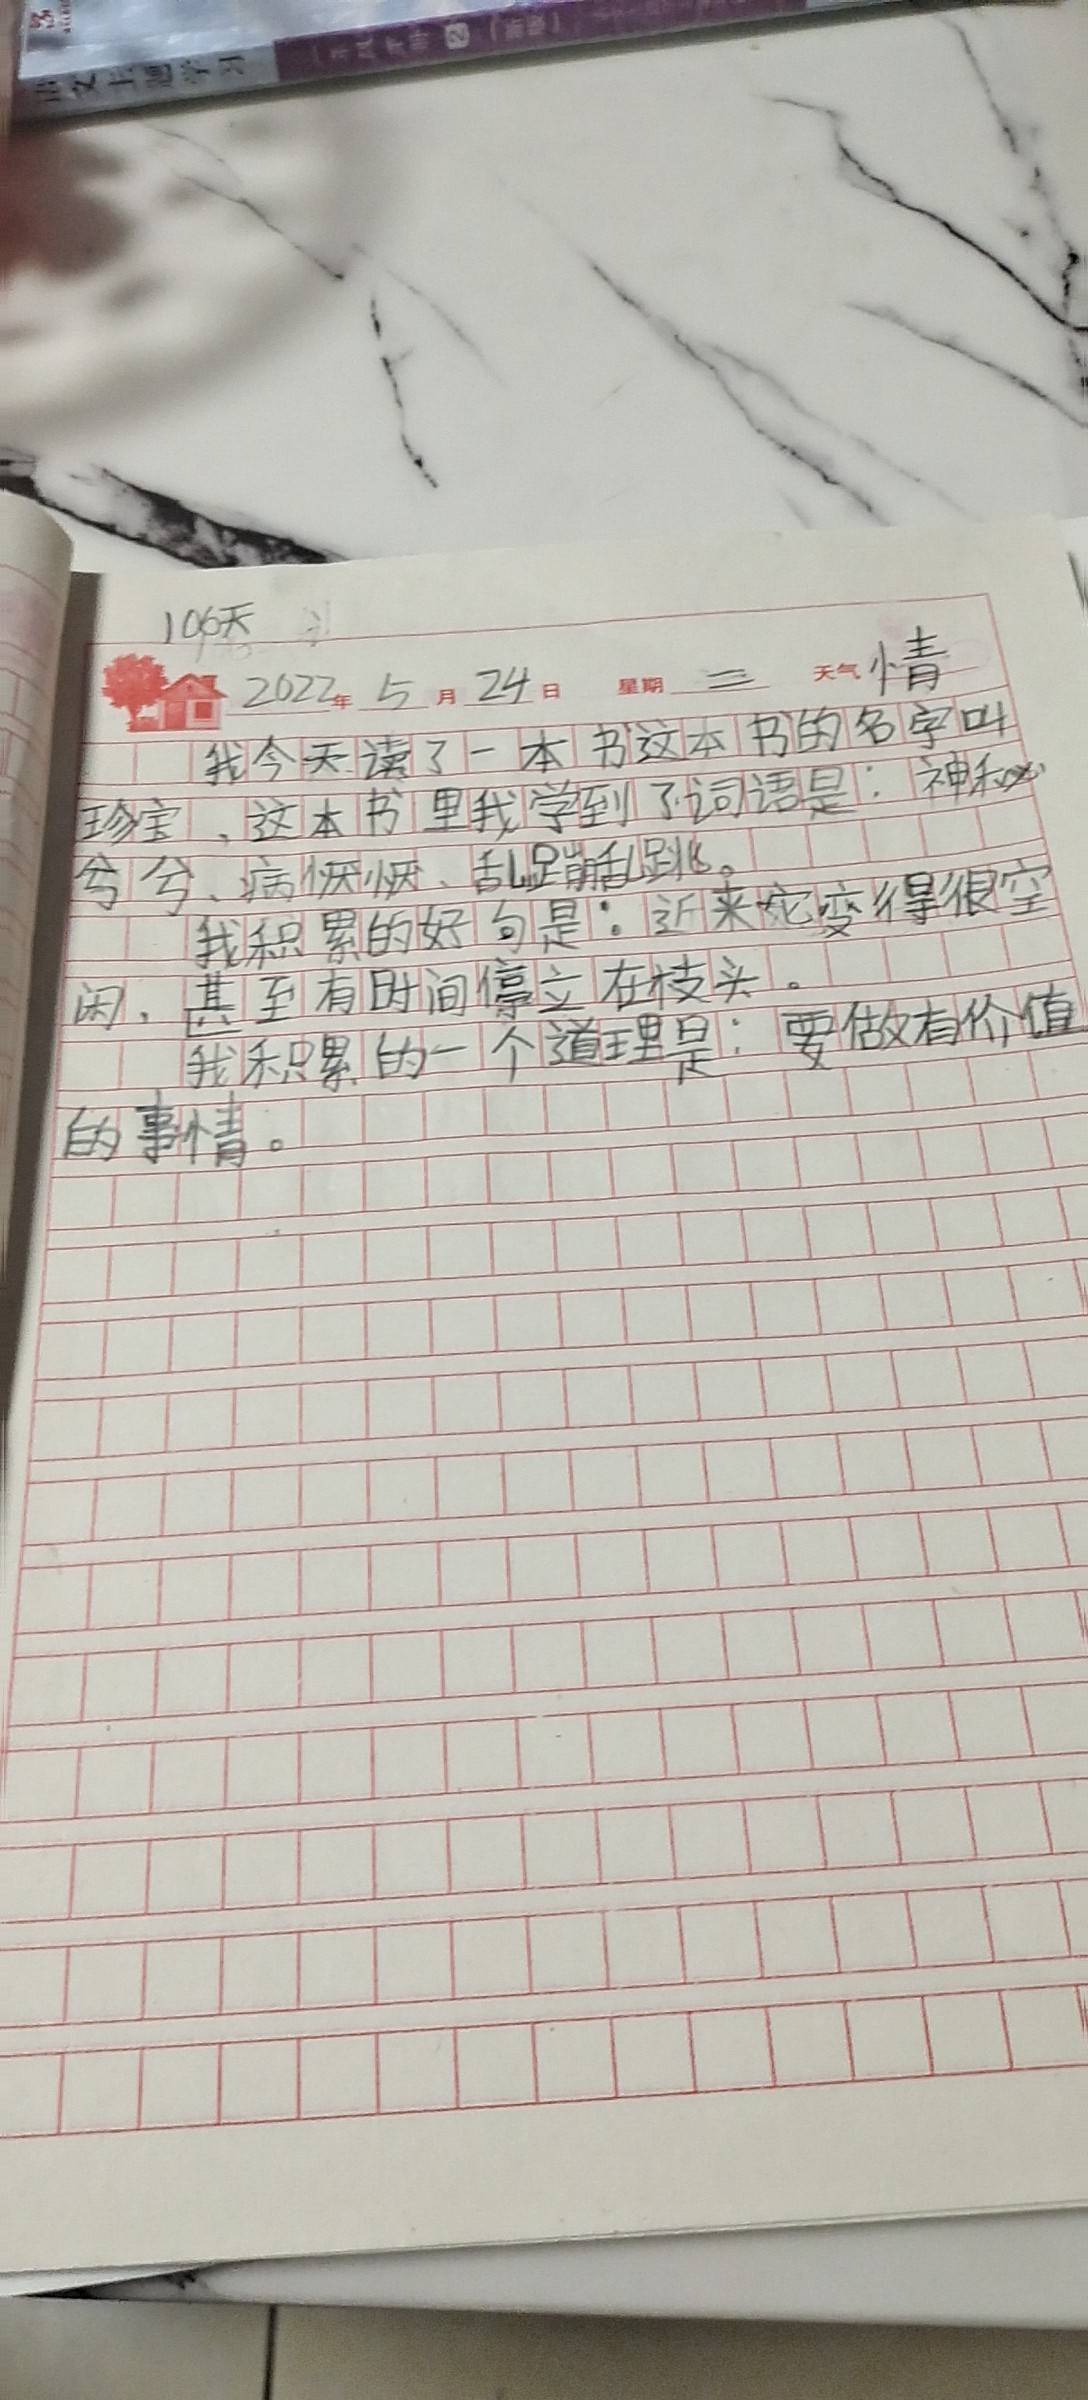 语文主题学习
106天
2022年 5月 24日 星期 二 天气 情
我今天读了一本书这本书的名字叫
珍宝、这本书里我学到了词语是：神秘
兮兮、病恹恹、乱蹦乱跳。
我积累的好句是：近来它变得很空
闲、甚至有时间停立在枝头。
我积累的一个道理是：要做有价值
的事情。